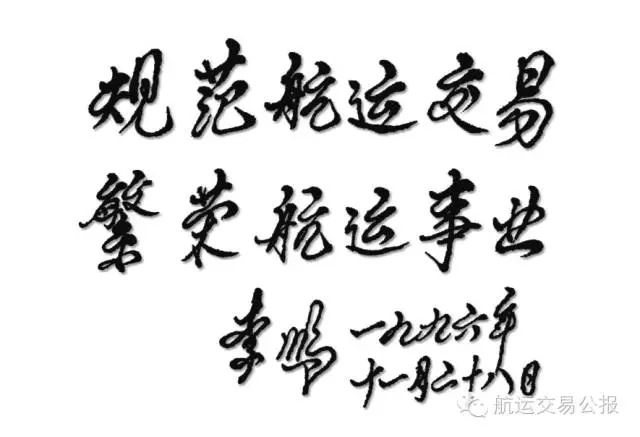 规范航运交易
繁荣航运事业
李鹏
一九九六年
十一月二十八日
航运交易公报